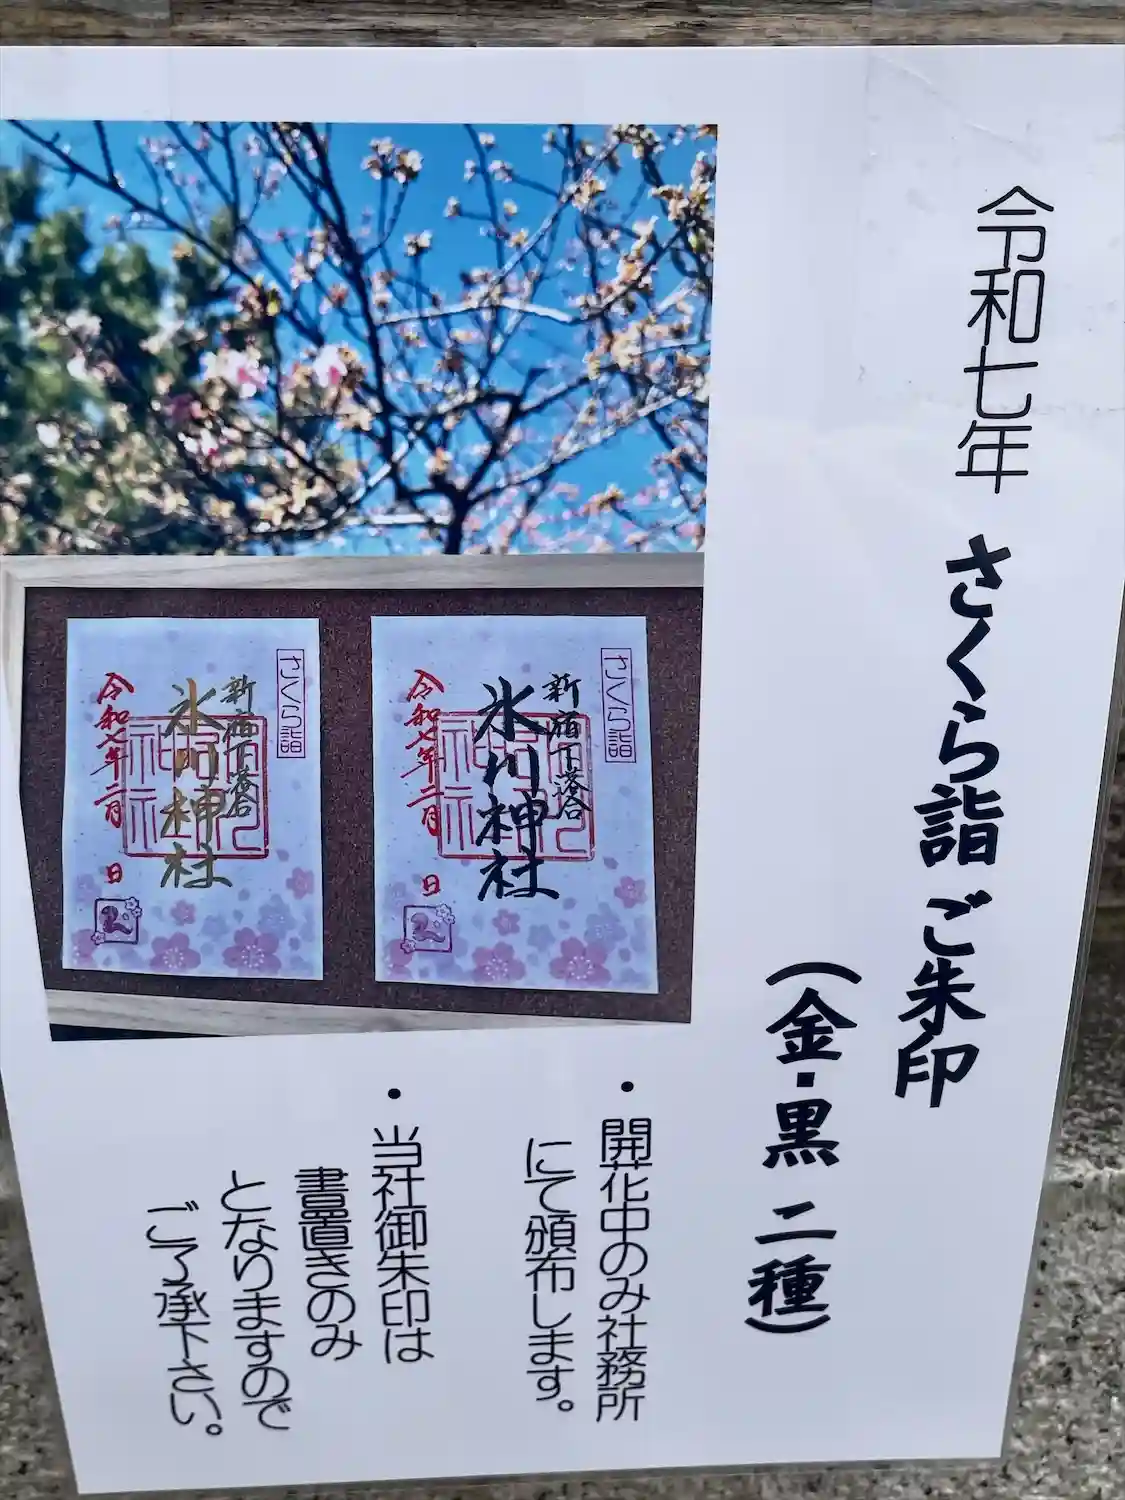 令和七年 さくら詣 ご朱印
(金・黒 二種)
さくら詣
新宿下落合
氷川神社
令和七年二月 日
さくら詣
新宿下落合
氷川神社
令和七年二月 日
・開花中のみ社務所
にて頒布します。
・当社御朱印は
書置きのみ
となりますので
ご了承下さい。